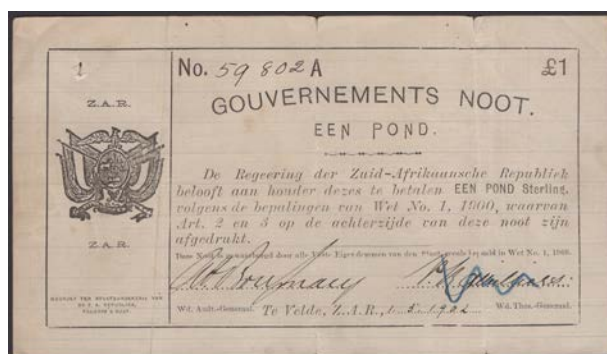 1
Z.A.R.
Z.A.R.
No. 59802 A £1
GOUVERNEMENTS NOOT.
EEN POND.
De Regeering der Zuid-Afrikaansche Republiek
belooft aan houder dezes te betalen EEN POND Sterling,
volgens de bepalingen van Wet No. 1, 1900, waarvan
Art. 2 en 3 op de achterzijde van deze noot zijn
afgedrukt.
Deze Noot is gewaarborgd door alle Vaste Eigendommen van den Staat, zooals bepaald in Wet No. 1, 1900.
Wd. Audt.-Generaal. Te Velde, Z.A.R., 1902 Wd. Thes.-Generaal.